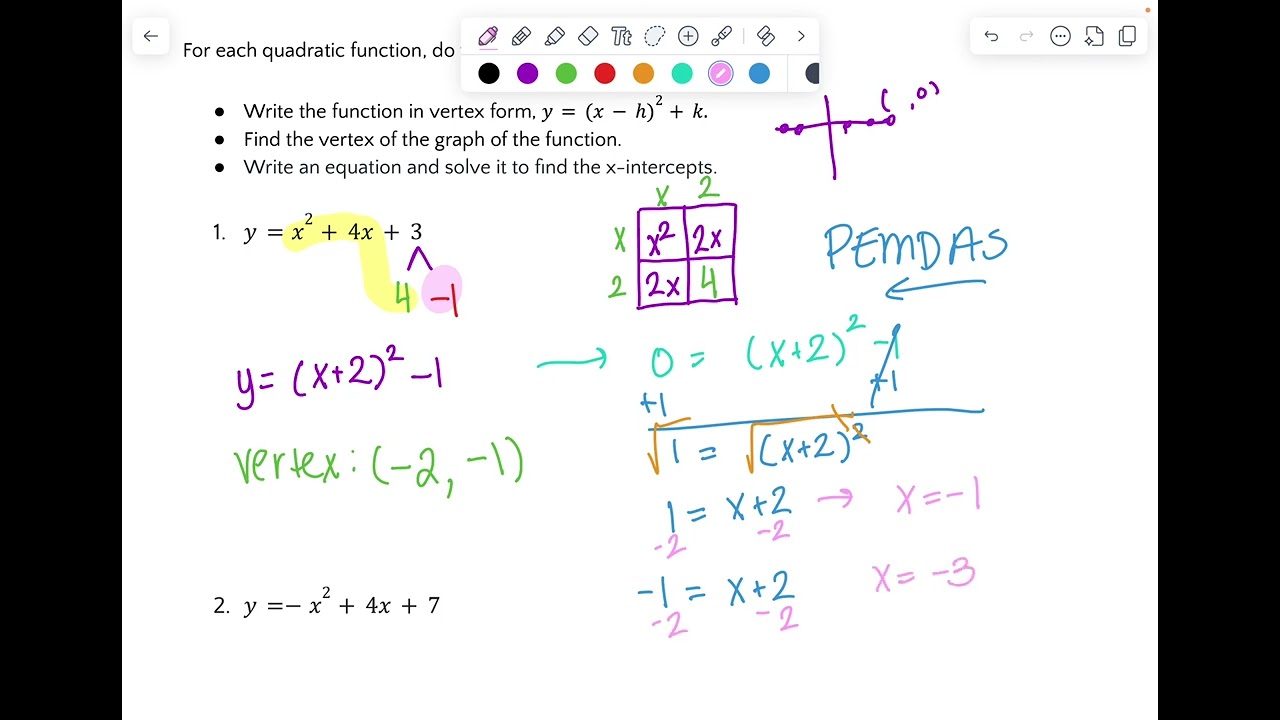 Tt
For each quadratic function, do
( ,0)
• Write the function in vertex form, y = (x − h)² + k.
• Find the vertex of the graph of the function.
• Write an equation and solve it to find the x-intercepts.
x 2
1. y = x² + 4x + 3
x x² 2x
2 2x 4
4 -1
PEMDAS
y = (x+2)² -1
0 = (x+2)² -1
+1 +1
√1 = √(x+2)²
vertex: (-2, -1)
1 = x+2 → x = -1
-2 -2
-1 = x+2 x = -3
-2 -2
2. y =− x² + 4x + 7